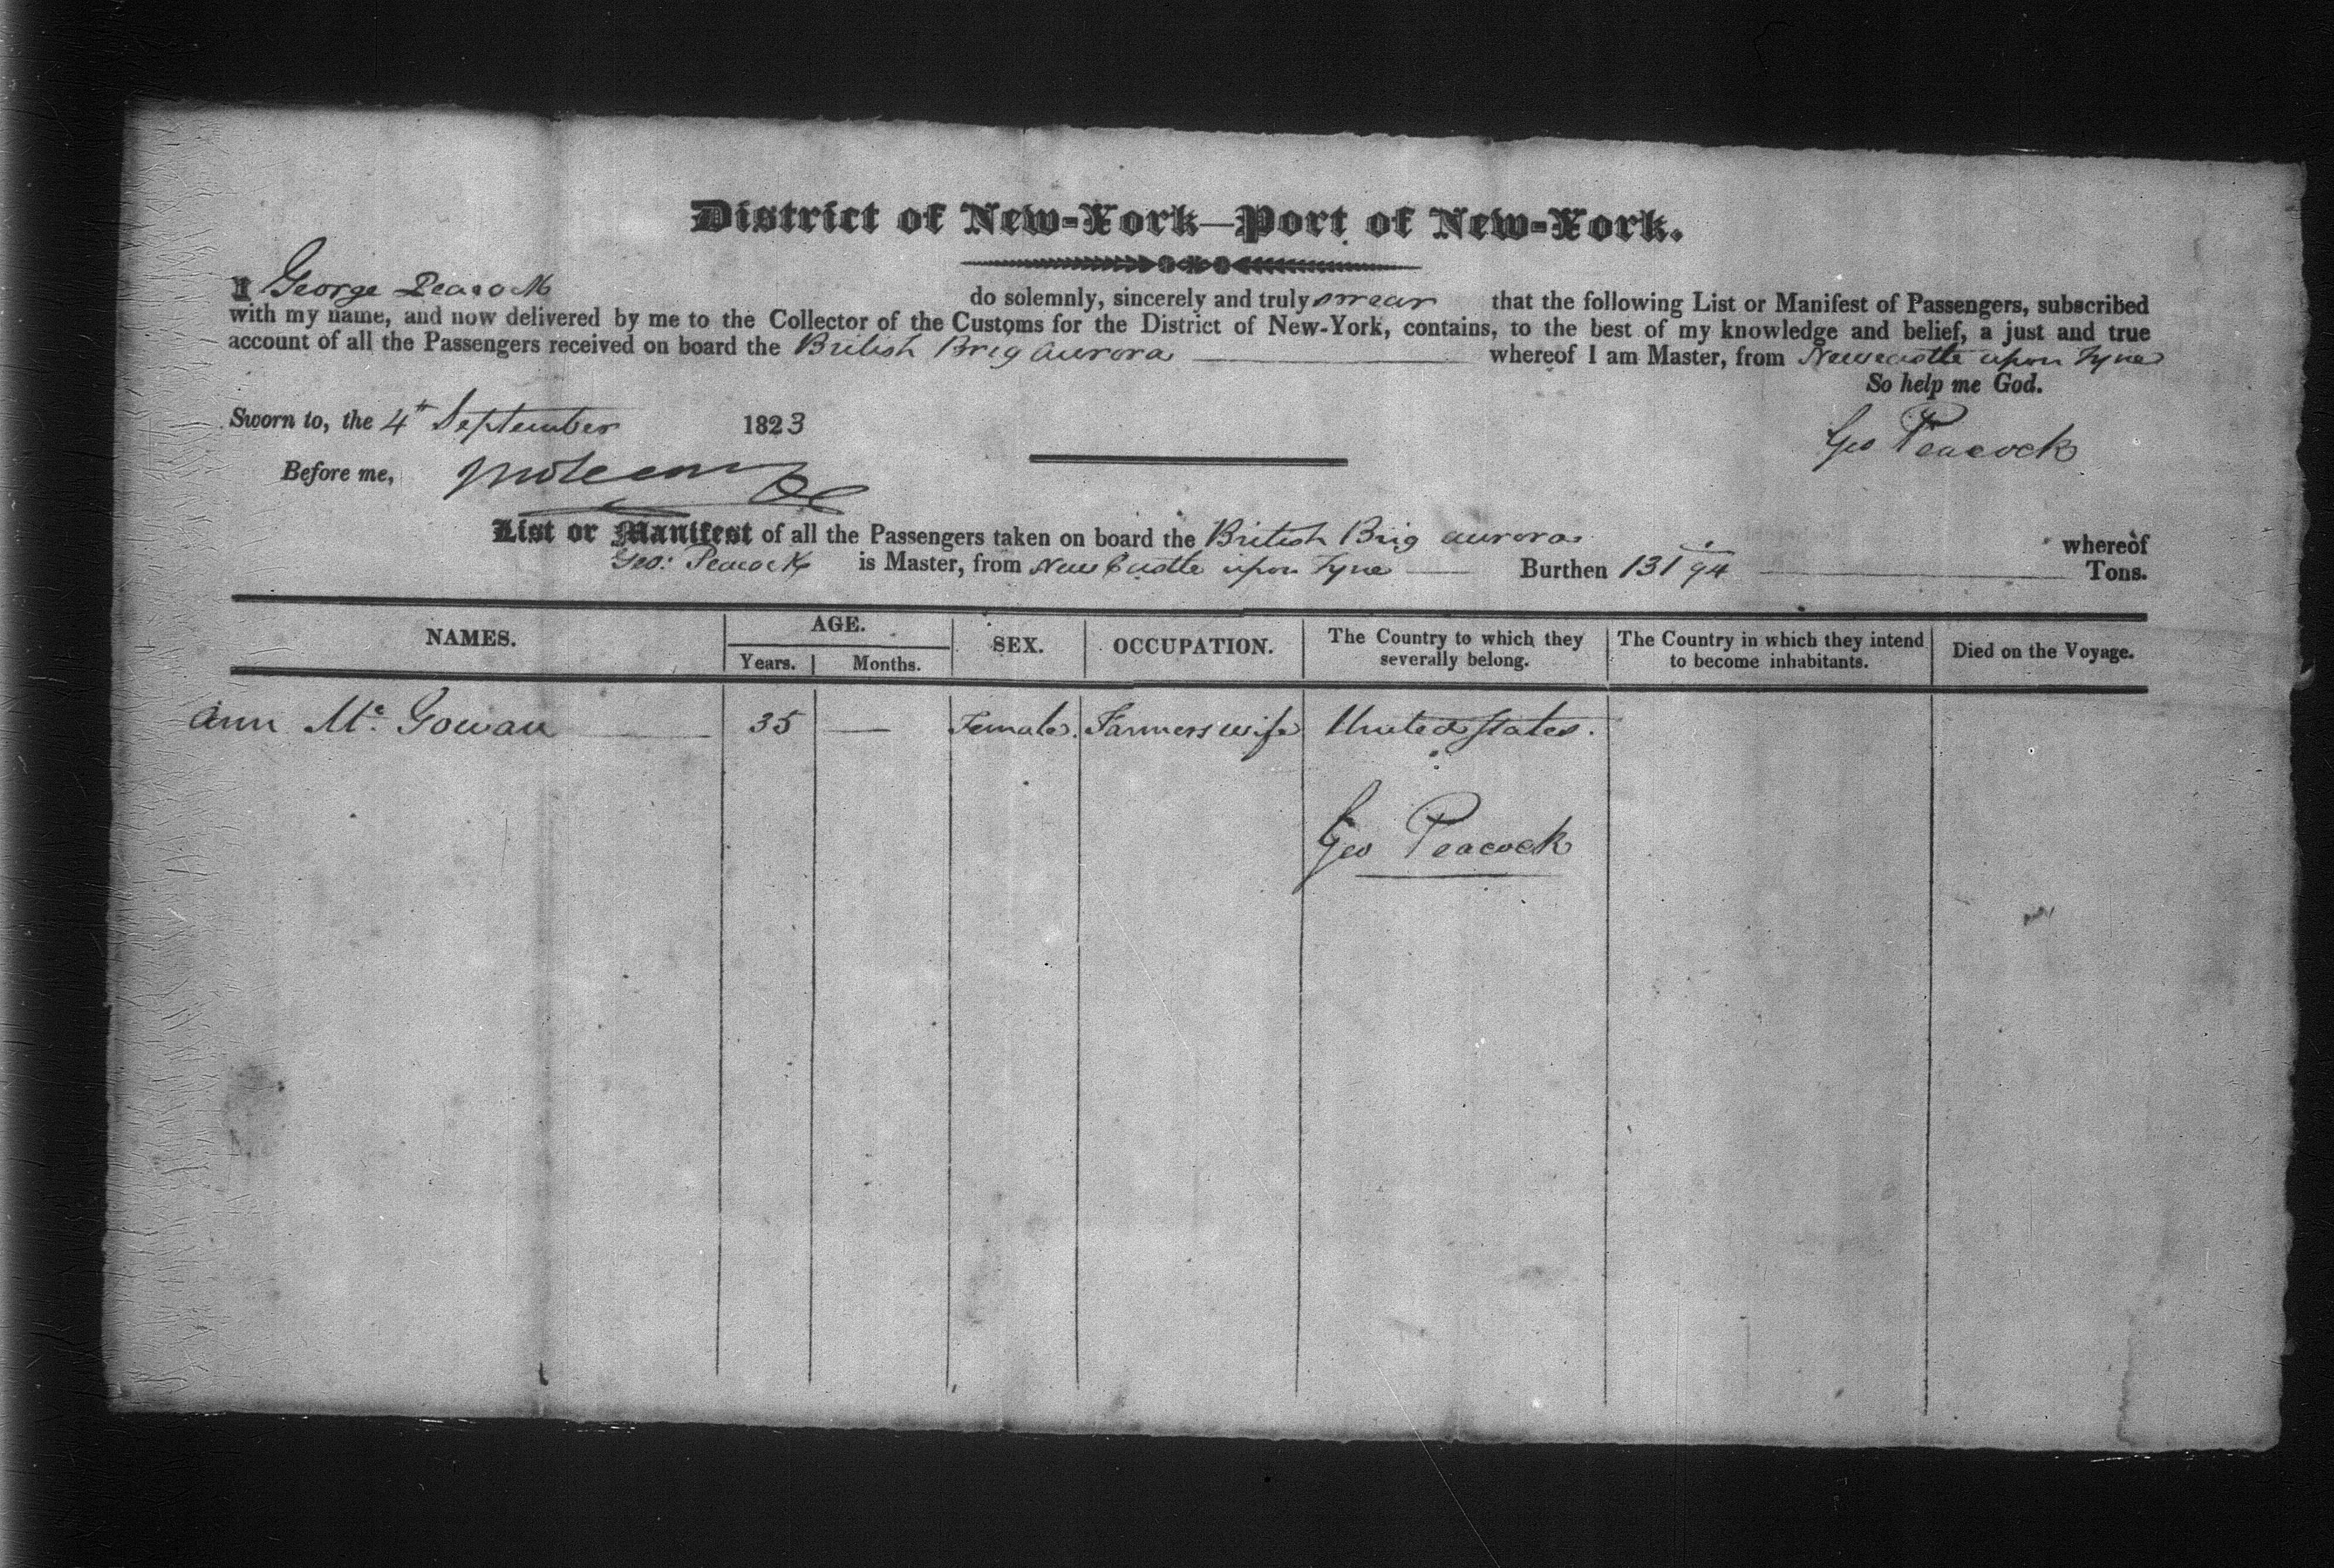 District of New-York—Port of New-York.
I George Peacock do solemnly, sincerely and truly swear that the following List or Manifest of Passengers, subscribed
with my name, and now delivered by me to the Collector of the Customs for the District of New-York, contains, to the best of my knowledge and belief, a just and true
account of all the Passengers received on board the British Brig Aurora whereof I am Master, from Newcastle upon Tyne
So help me God.
Sworn to, the 4th September 1823
Geo Peacock
Before me,
List or Manifest of all the Passengers taken on board the British Brig Aurora whereof
Geo: Peacock is Master, from New Castle upon Tyne Burthen 131 94 Tons.
NAMES. AGE. SEX. OCCUPATION. The Country to which they severally belong. The Country in which they intend to become inhabitants. Died on the Voyage.
Years. Months.
Ann Mc Gowan 35 — Female. Farmers wife United States.
Geo Peacock